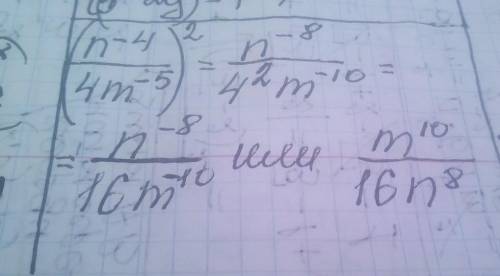 (n⁻⁴/4m⁻⁵)² = n⁻⁸/4²m⁻¹⁰ =
= n⁻⁸/16m⁻¹⁰ или m¹⁰/16n⁸